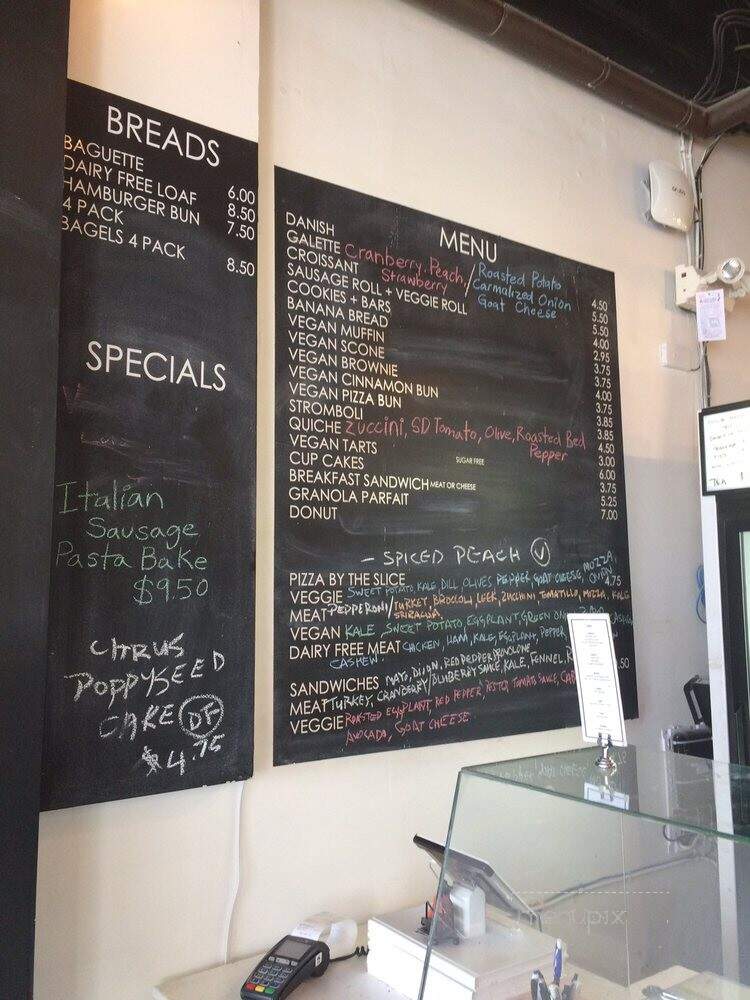 BREADS
BAGUETTE 6.00
DAIRY FREE LOAF 8.50
HAMBURGER BUN 7.50
4 PACK
BAGELS 4 PACK 8.50
SPECIALS
Italian
Sausage
Pasta Bake
$9.50
CITRUS
POPPYSEED
CAKE DF
$4.75
MENU
DANISH 4.50
GALETTE Cranberry. Peach, / Roasted Potato 5.50
Strawberry Carmalized Onion
Goat Cheese
CROISSANT 5.50
SAUSAGE ROLL + VEGGIE ROLL 4.00
COOKIES + BARS 2.95
BANANA BREAD 3.75
VEGAN MUFFIN 3.75
VEGAN SCONE 4.00
VEGAN BROWNIE 3.75
VEGAN CINNAMON BUN 3.85
VEGAN PIZZA BUN 3.85
STROMBOLI 4.50
QUICHE Zuccini, SD Tomato, Olive, Roasted Bed 3.00
Pepper
VEGAN TARTS 6.00
CUP CAKES SUGAR FREE 3.75
BREAKFAST SANDWICH MEAT OR CHEESE 5.25
GRANOLA PARFAIT 7.00
DONUT
- SPICED PEACH V
PIZZA BY THE SLICE 4.75
VEGGIE SWEET POTATO, KALE DILL OLIVES PEPPER, GOAT CHEESE, MOZZA, ONION
MEAT PEPPERONI/TURKEY, BROCCOLI LEEK, ZUCCHINI, TOMATILLO, MOZZA, KALE
SRIRACHA
VEGAN KALE, SWEET POTATO EGGPLANT, GREEN
DAIRY FREE MEAT CHICKEN, HAM, KALE, EGGPLANT, PEPPER
CASHEW
SANDWICHES MAYO, DIJON, RED PEPPER PROVOLONE .50
MEAT TURKEY, CRANBERRY/BLUEBERRY SAUCE, KALE, FENNEL,
VEGGIE ROASTED EGGPLANT, RED PEPPER, PESTO, TOMATO SAUCE,
AVOCADO, GOAT CHEESE
menupix